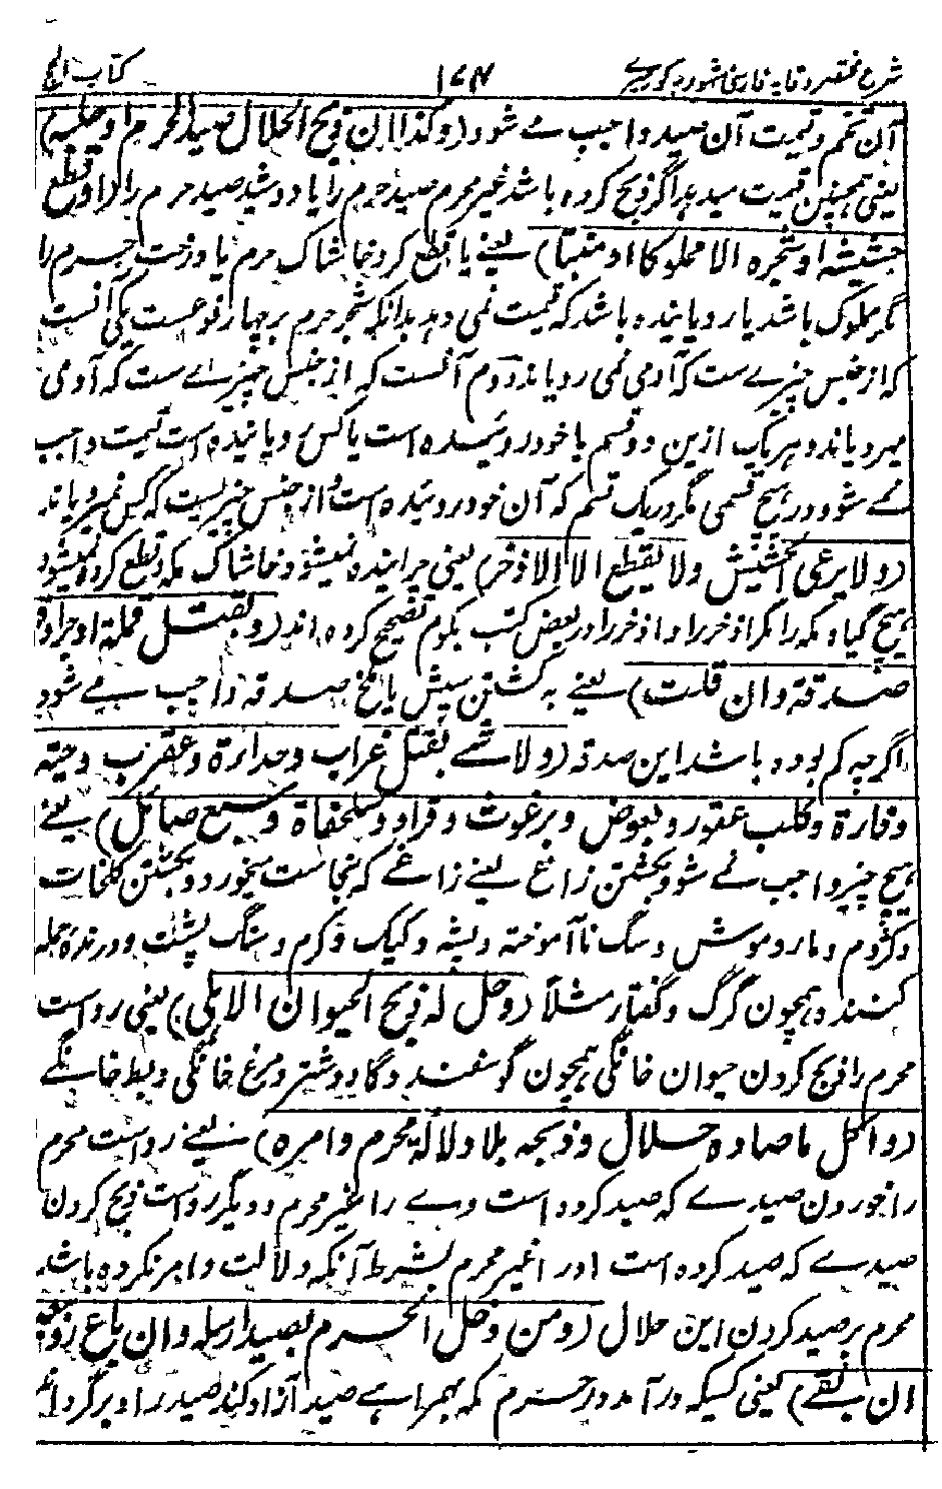 شرح مختصر وقایه فارسی
۱۶۴
کتاب الحج
آن تخم و قیمت آن صید واجب مے شود (و کذا ان ذبح الحلال صید الحرم او حلبه)
یعنی همچنین قیمت میدهد اگر ذبح کرده باشد غیر محرم صید حرم را یا دوشید صید حرم را (او قطع
حشیشه او شجره الا مملوکا او منبتا) یعنے یا قطع کرد خاشاک حرم یا درخت حرم را
مگر مملوک باشد یا رویانیده باشد که قیمت نمی دهد بدانکه شجر حرم بر چهار نوعست یکی آنست
که از جنس چیزے ست که آدمی نمی رویاند دوم آنست که از جنس چیزے ست که آدمی
میرویاند و هر یک ازین دو قسم یا خود روئیده است یا کس رویانیده است قیمت واجب
نمے شود در هیچ قسمی مگر در یک قسم که آن خود روئیده است و از جنس چیزیست که کس نمیرویاند
(ولا یرعی الحشیش ولا یقطع الا الاذخر) یعنی چرانیده نمیشود خاشاک مکه و قطع کرده نمیشود
هیچ گیاه مکه را مگر اذخر را و اذخر را در بعض کتب بکوم تصحیح کرده اند (و بقتل قملة او جرادة
صدقة وان قلت) یعنے به کشتن سپش یا ملخ صدقه واجب مے شود
اگرچه کم بوده باشد این صدقه (ولا شے بقتل غراب وحدارة وعقرب وحیته
وفارة وکلب عقور وبعوض وبرغوث وقراد وسلحفاة وسبع صائل) یعنے
هیچ چیز واجب نمے شود بکشتن زاغ یعنے زاغے که نجاست میخورد و بکشتن کلخات
وکژدم و مار و موش و سگ ناآموخته و پشه و کیک و کرم و سنگ پشت و درنده حمله
کننده همچون گرگ و کفتار مثلاً (وحل له ذبح الحیوان الاهلی) یعنی رواست
محرم را ذبح کردن حیوان خانگی همچون گوسفند و گاو و شتر و مرغ خانگی و بط خانگے
(واکل ما صاده حلال وذبحه بلا دلالة محرم وامره) یعنے رواست محرم
را خوردن صیدے که صید کرده است وے را غیر محرم و دیگر رواست ذبح کردن
صیدے که صید کرده است او را غیر محرم بشرط آنکه دلالت و امر نکرده باشد
محرم بر صید کردن این حلال (ومن دخل الحرم بصید ارسله وان باع رد بیعه
ان بقے) یعنی کسیکه درآمد در حرم مکه بهمراهے صید آزاد کند صید را و برگرداند